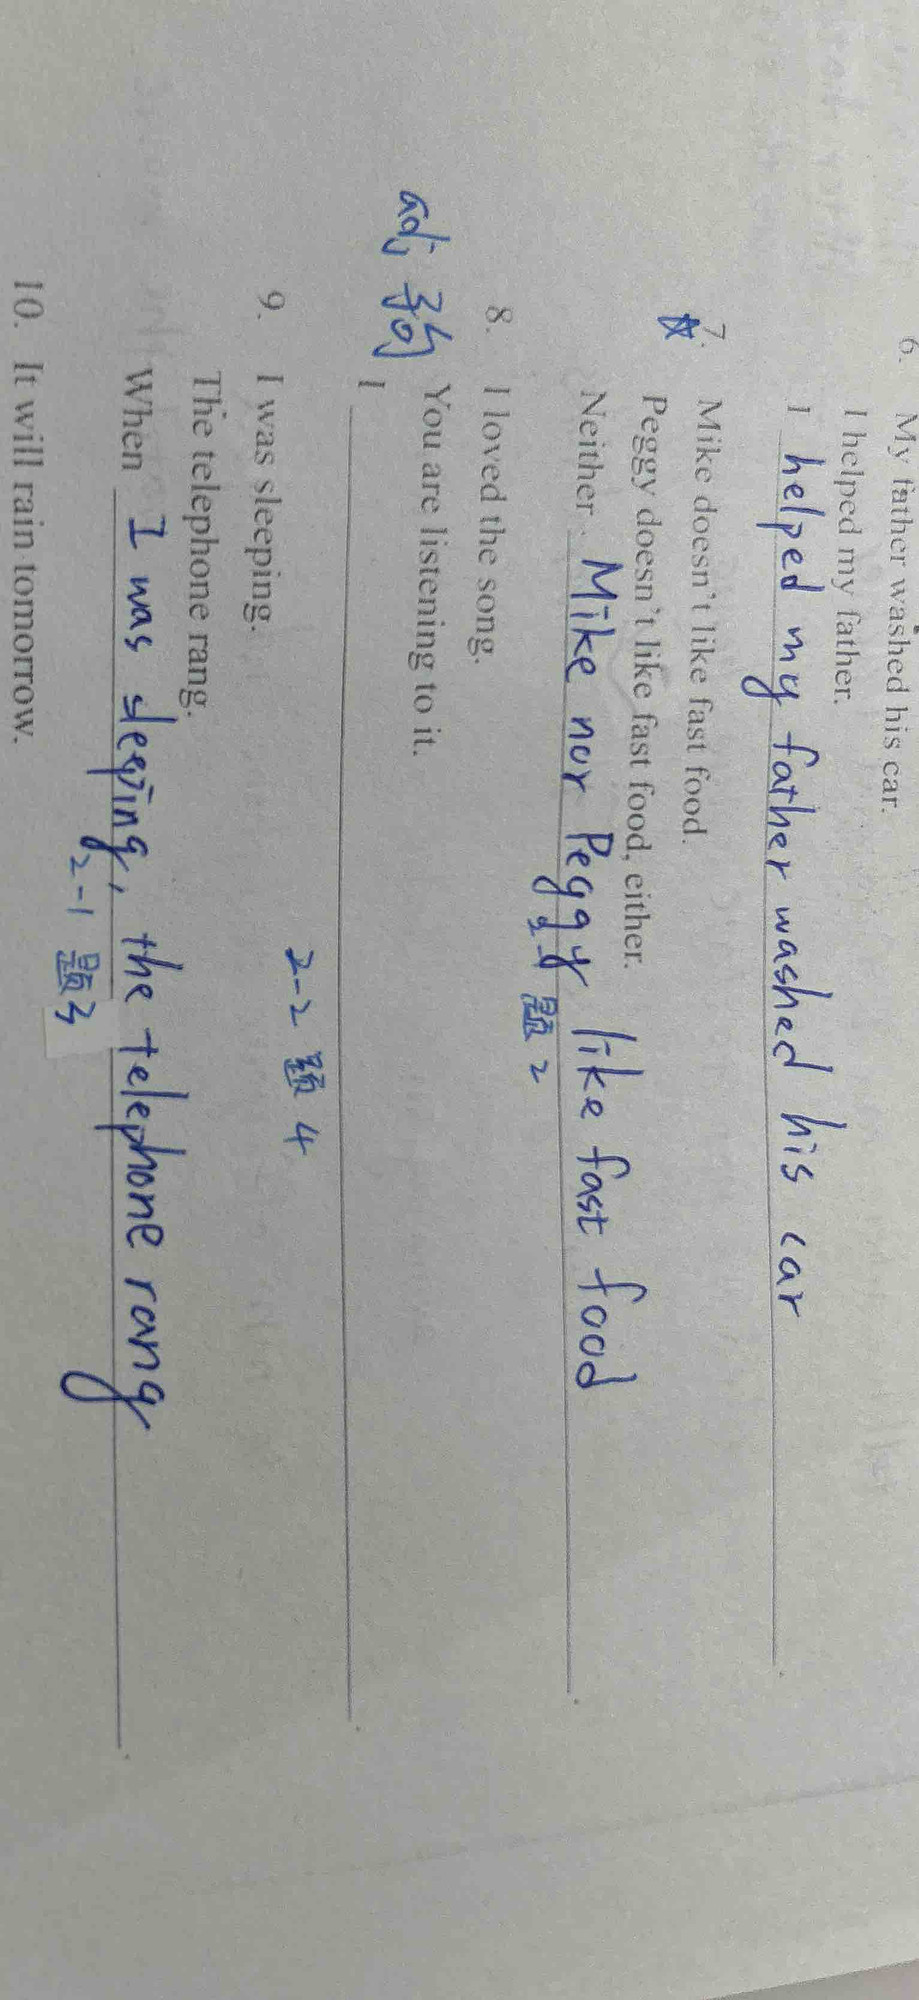 6. My father washed his car.
I helped my father.
I helped my father washed his car.
7. Mike doesn't like fast food.
Peggy doesn't like fast food, either.
Neither Mike nor Peggy like fast food.
2-1 題2
8. I loved the song.
You are listening to it.
adj 子句
I
2-2 題4
9. I was sleeping.
The telephone rang.
When I was sleeping, the telephone rang.
2-1 題3
10. It will rain tomorrow.